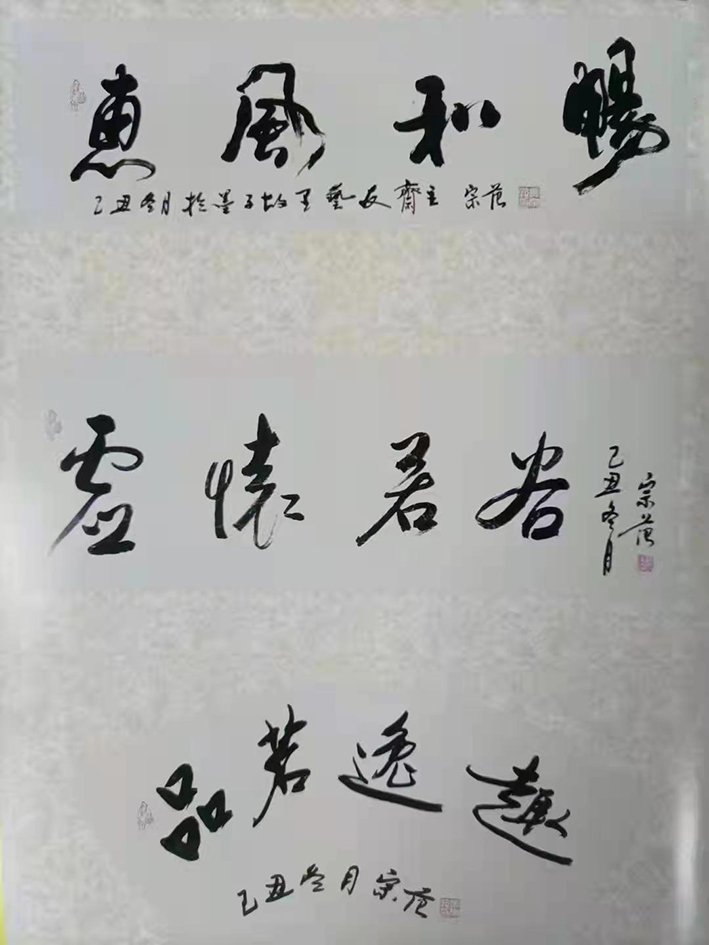 惠風和暢
己丑冬月於墨子故里藝友齋主 宗范
虛懷若谷
己丑冬月
宗范
品茗逸趣
己丑冬月宗范